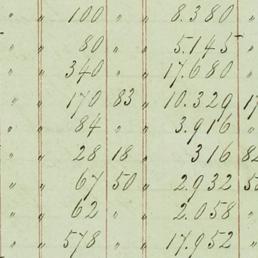 100 " 8.380 "
" 80 " 5.145 "
" " 340 " " 17.680 "
" " 170 83 " 10.329 1
" " 84 " " 3.916 "
" " 28 18 " 316 82
" " 67 50 " 2.932 5
" " 62 " 2.058 "
" " 578 " 17.952 "